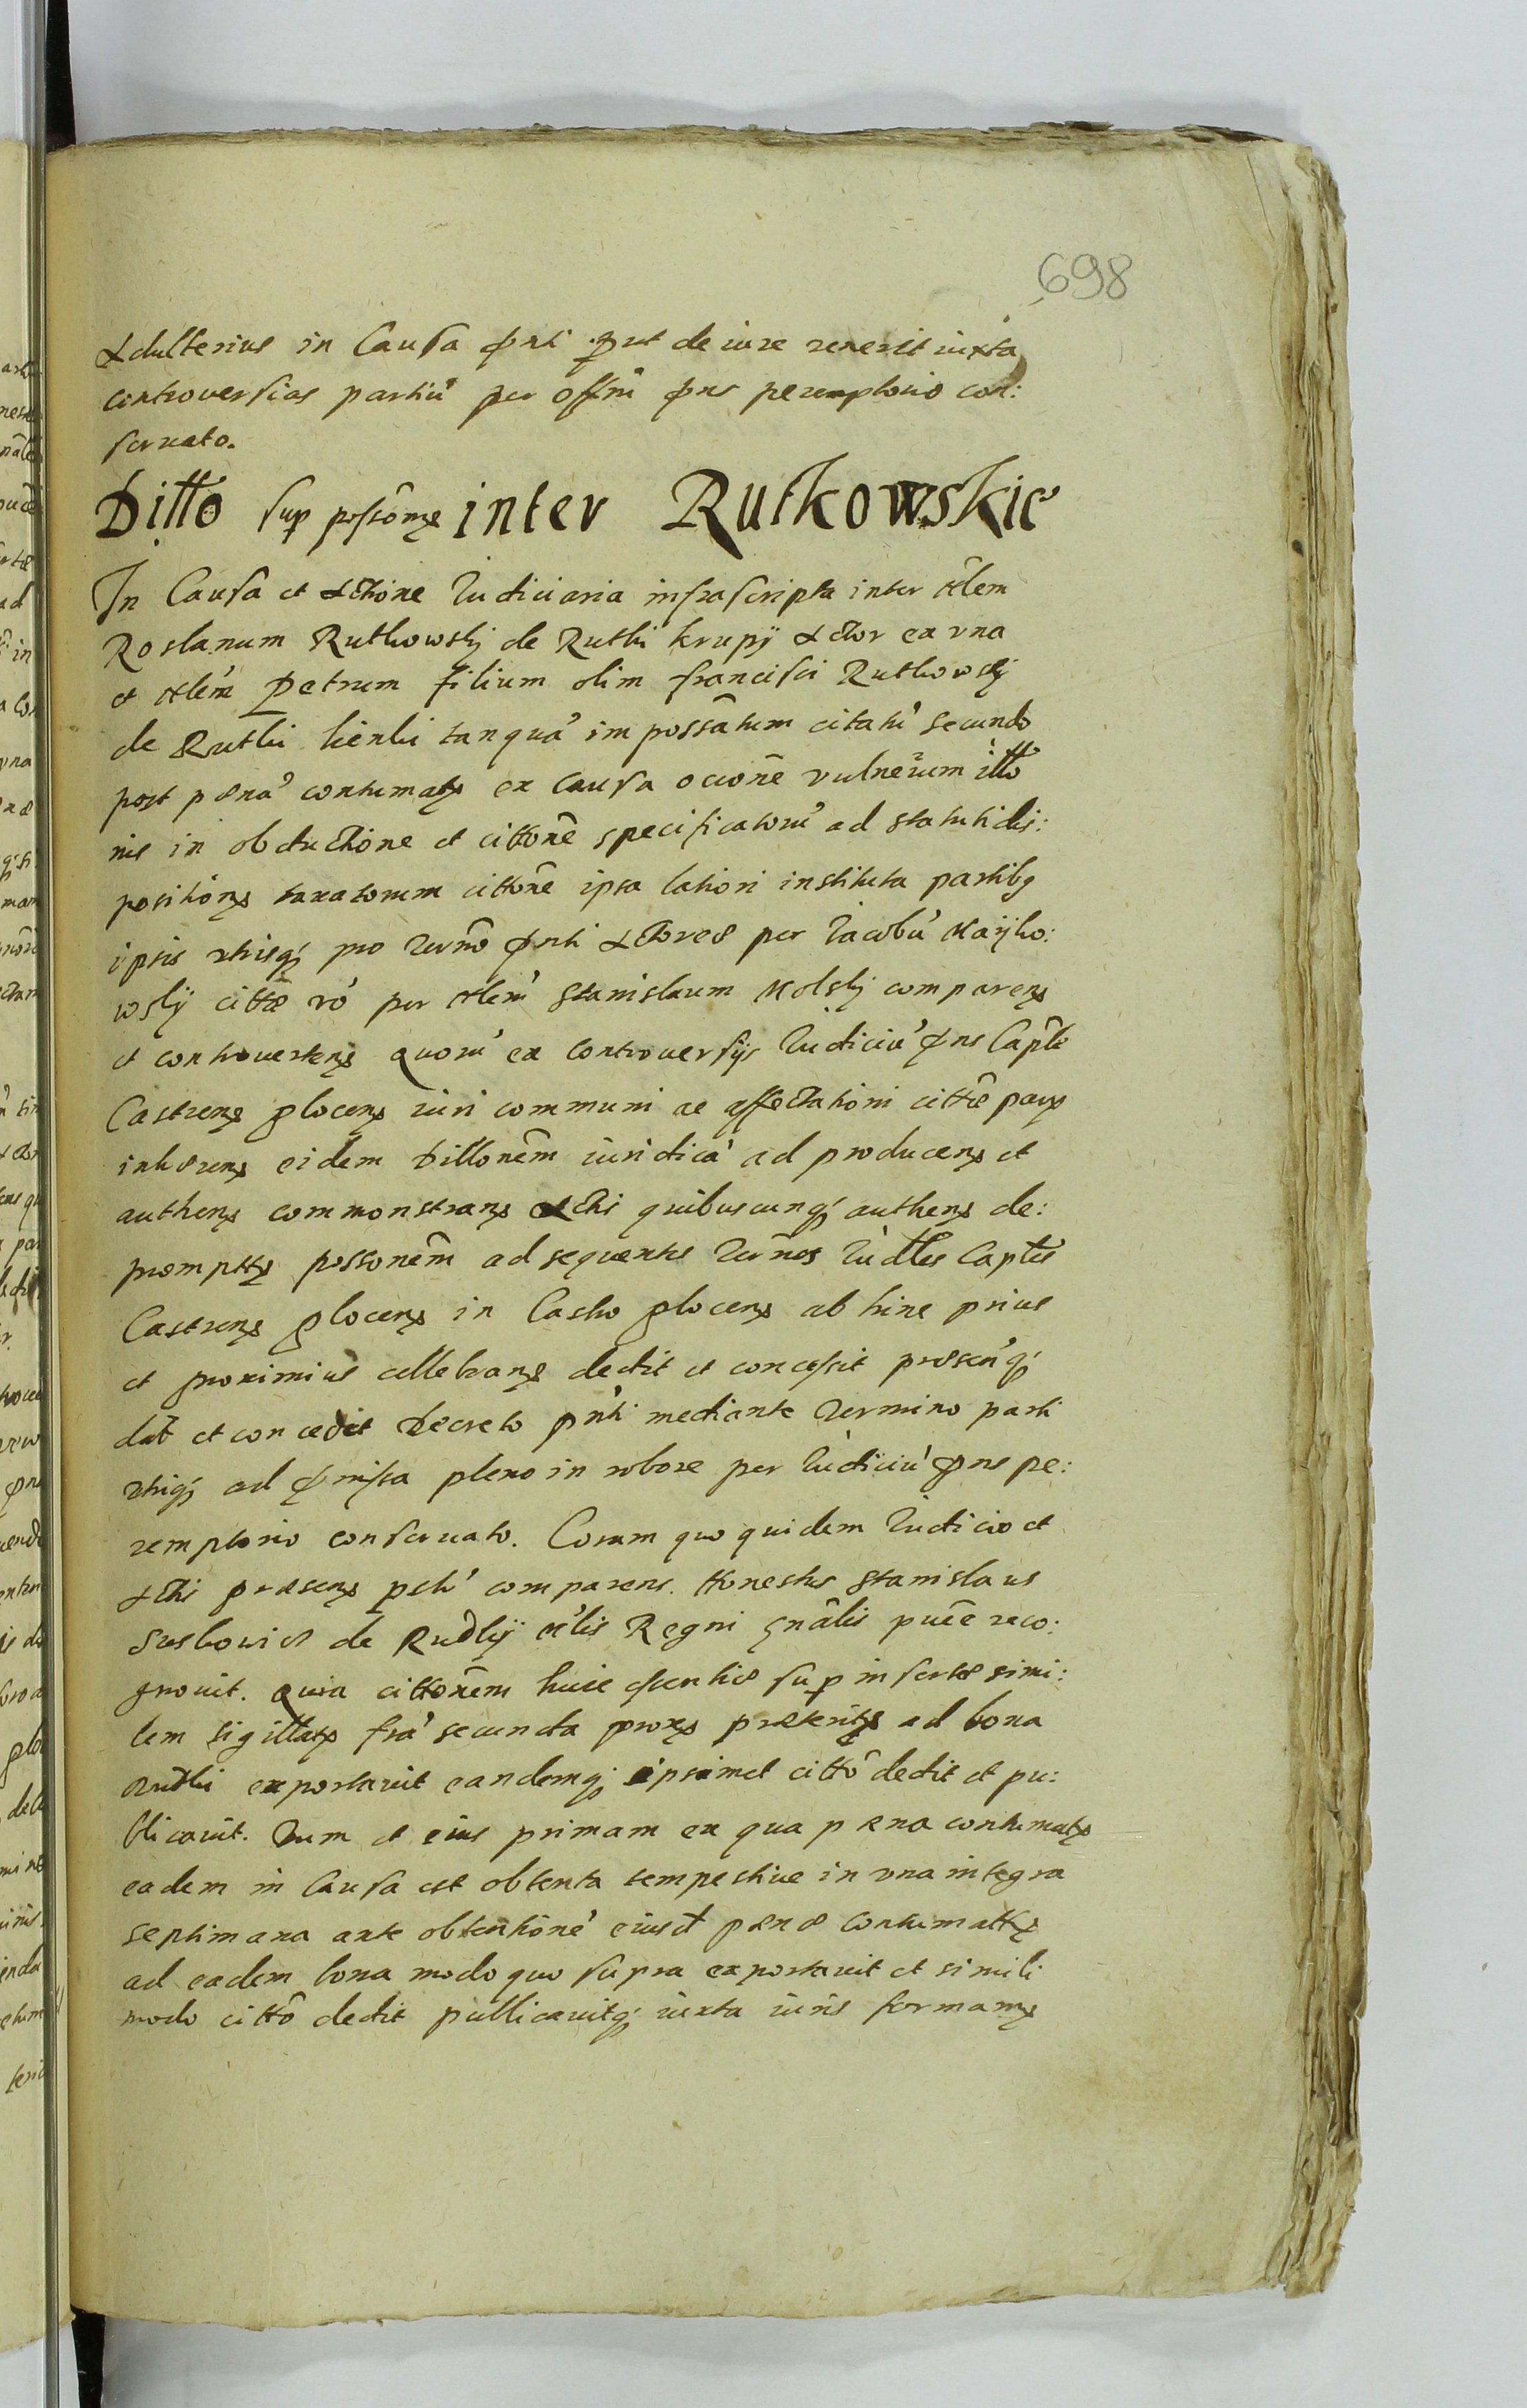 698
Adulterius in Causa pñti put de iure venerit iuxta
controversias partiũ per offm pñs peremptorio con:
servato.
Ditto sup possõnę inter Rutkowskie
In Causa et Actione Iudiciaria infrascripta inter Nlem
Roslanum Rutkowsky de Rutki krupÿ Actor ex vna
et Nlem Petrum filium olim francisci Rutkowsky
de Rutki tanquã impossãtum citatũ secundo
post pœnã contumatę ex Causa vulnerum illo
nie in obductione et cittõne specificatorũ ad statuti dis:
positionę taxatorum cittõne ipsa latiori instituta partibq
ipsis vtrisq pro Termo pñti Actores per Iacobũ
wsky citte vo per Nlem Stanislaum Molsky comparenę
et controvertenę Quorũ ex Controversÿs Iudiciũ pñs Capłe
Castrenę plocenę iuri communi ac affectationi citte parę
inhærenę eidem Dillonem iuridicã ad producenę et
authenę commonstranę Acti quibuscunq authenę de:
promptę possonem ad sequentes Termos Iudłes Captes
Castrenę plocenę in Castro plocenę ab hinc prius
et proximius cellebranę dedit et concessit præsenq
dat et concedit Decreto pñti mediante Termino parti
vtriq ad pmissa pleno in robore per Iudiciũ pñs pe:
remptorio conservato. Coram quo quidem Iudicio et
Actis præsenę psło comparens. Honestus Stanislaus
de Rudky Mlis Regni gnãlis puce reco:
gnovit. Quia cittonem huic essentiæ sup insertæ simi:
lem sigillatę frã secunda proxę præteritę ad bona
Rutki exportavit eandemq ipsimet citto dedit et pu:
blicavit. Tum et eius primam ex qua pæna contumatę
eadem in Causa est obtenta tempestive in vna integra
septimana ante obtentionẽ eiusd pænæ contumattę
ad eadem bona modo quo supra exportavit et simili
modo citto dedit publicavitq iuxta iuris formamę